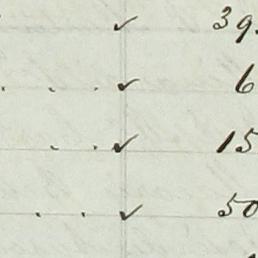 ✓ 39.
. . . ✓ 6
. . ✓ 15
. . ✓ 50